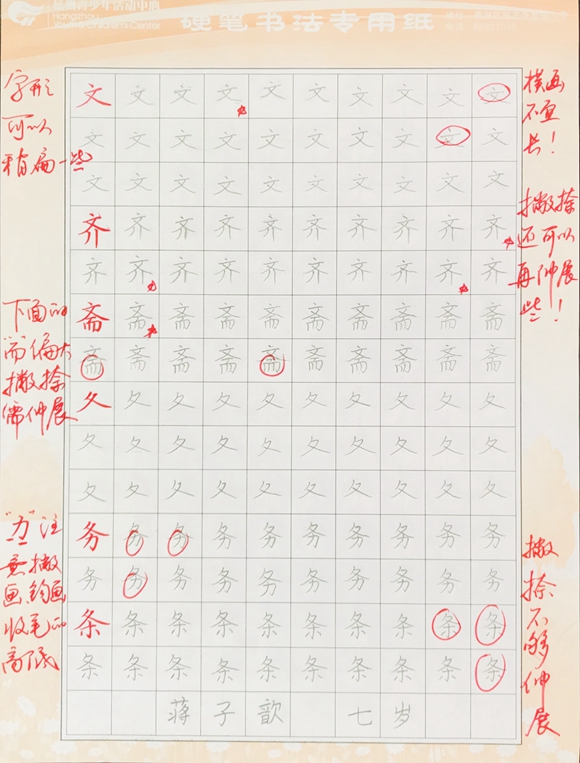 杭州青少年活动中心
Hangzhou Youth & Children's Center
硬笔书法专用纸
字形
可以
稍扁一些
下面的
而偏大
撇捺
需伸展
"力"注
意撇
画钩画
收笔的
高低
文文文文文文文文文文
文文文文文文文文文文
文文文文文文文文文文
齐齐齐齐齐齐齐齐齐齐
齐齐齐齐齐齐齐齐齐齐
斋斋斋斋斋斋斋斋斋斋
斋斋斋斋斋斋斋斋斋斋
夂夂夂夂夂夂夂夂夂夂
夂夂夂夂夂夂夂夂夂夂
夂夂夂夂夂夂夂夂夂夂
务务务务务务务务务务
务务务务务务务务务务
条条条条条条条条条条
条条条条条条条条条条
蒋子歆 七岁
横画
不宜
长！
撇捺
还可以
再伸展
些！
撇
捺
不
够
伸
展